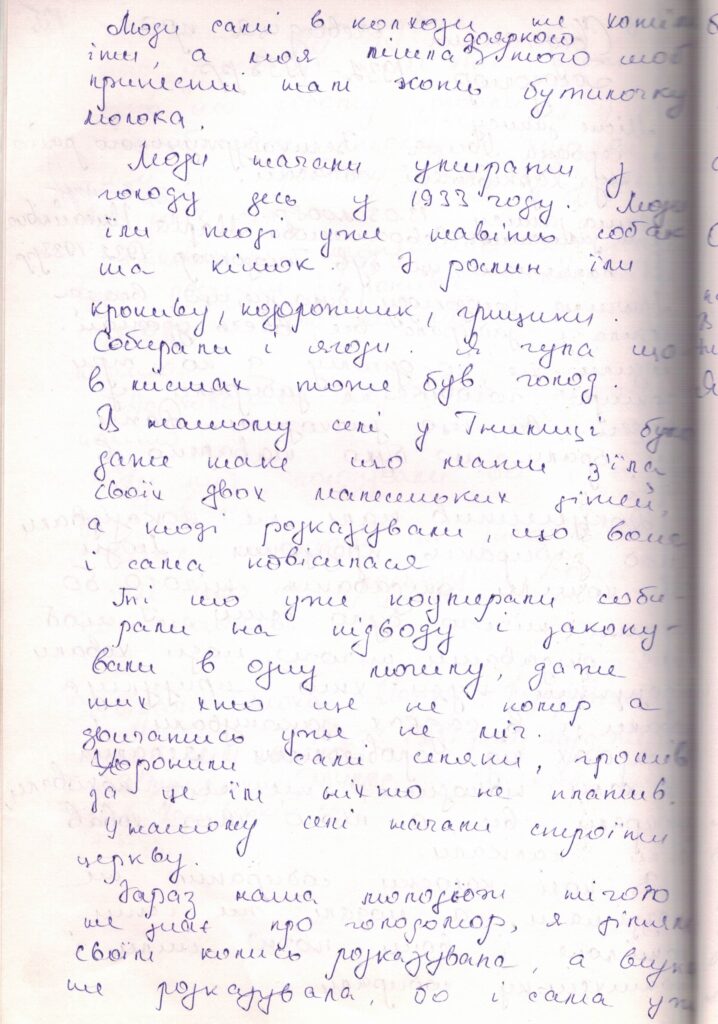 Люди самі в колхози не хотіли
іти, а моя пішла дояркою того шоб
принести нам хоть бутилочку
молока.
Люди начали умирати з
голоду десь у 1933 году. Люди
їли тоді уже навіть собак
та кішок. З рослин їли
кропиву, подорожник, грицики.
Собирали і ягоди. Я чула що
в містах тоже був голод.
В нашому селі у Гнилиці було
даже таке шо мати з'їла
своїх двох малесеньких дітей,
а тоді розказували, що вона
і сама повісилася
Ті шо уже поумерали соби-
рали на підводу і закопу-
вали в одну могилу, даже
тих хто ще не помер а
двигатись уже не міг.
Хоронили самі селяни, грошів
за це їм ніхто не платив.
У нашому селі начали строїти
церкву.
Зараз наша молодьож нічого
не знає про голодомор, я дітям
своїм колись розказувала, а внукам
не розказувала, бо і сама уже